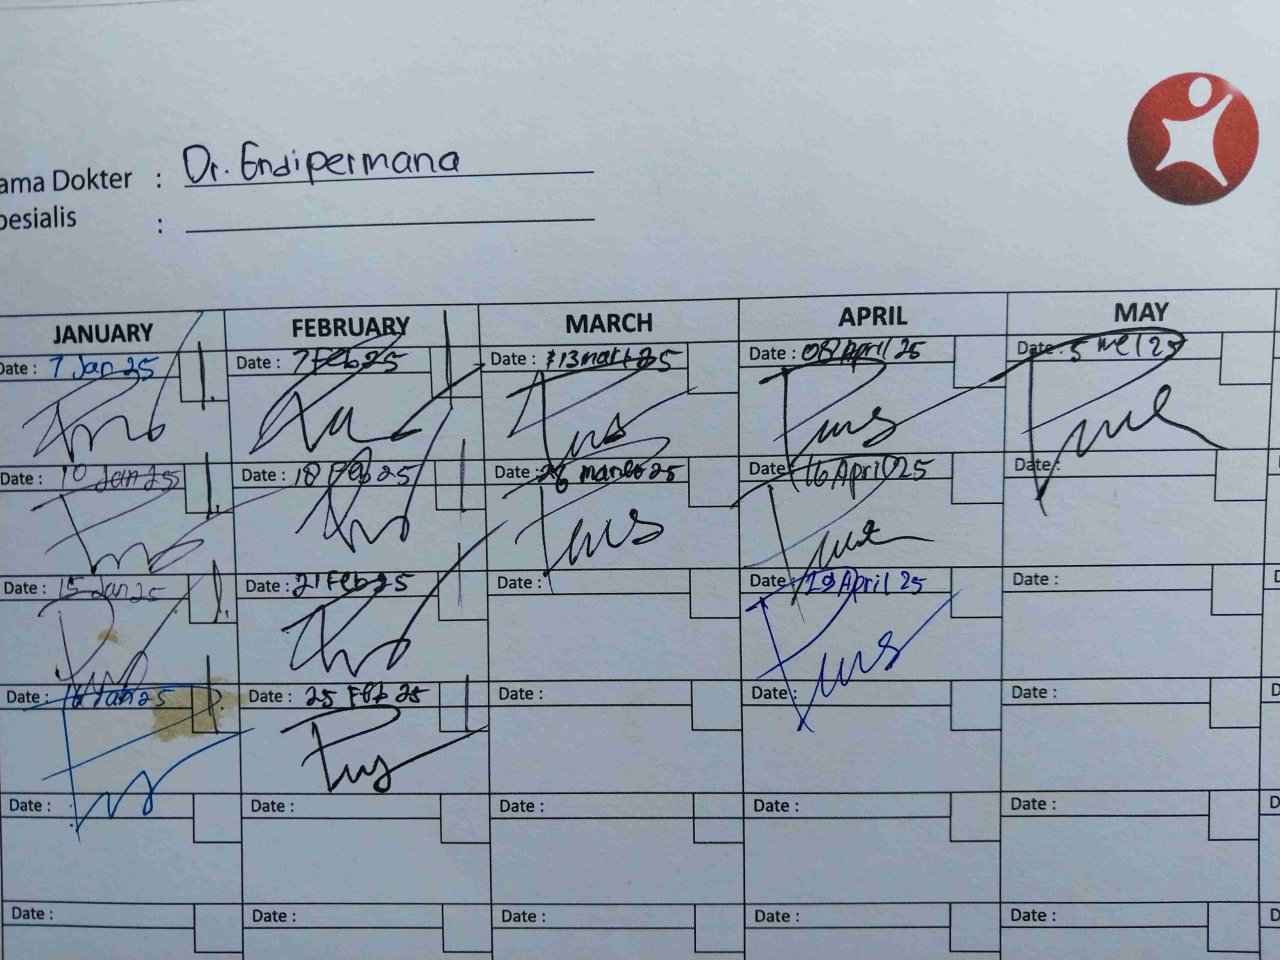 ama Dokter : Dr. Endipermana
pesialis :
JANUARY FEBRUARY MARCH APRIL MAY
Date : 7 Jan 25 Date : 7 Feb 25 Date : 13 mart 25 Date : 08 April 25 Date : 5 mei 25
Date : 10 Jan 25 Date : 18 Feb 25 Date : 26 maret 25 Date : 16 April 25 Date :
Date : 15 Jan 25 Date : 21 Feb 25 Date : Date : 29 April 25 Date :
Date : Jan 25 Date : 25 Feb 25 Date : Date : Date : D
Date : Date : Date : Date : Date : D
Date : Date : Date : Date : Date : D